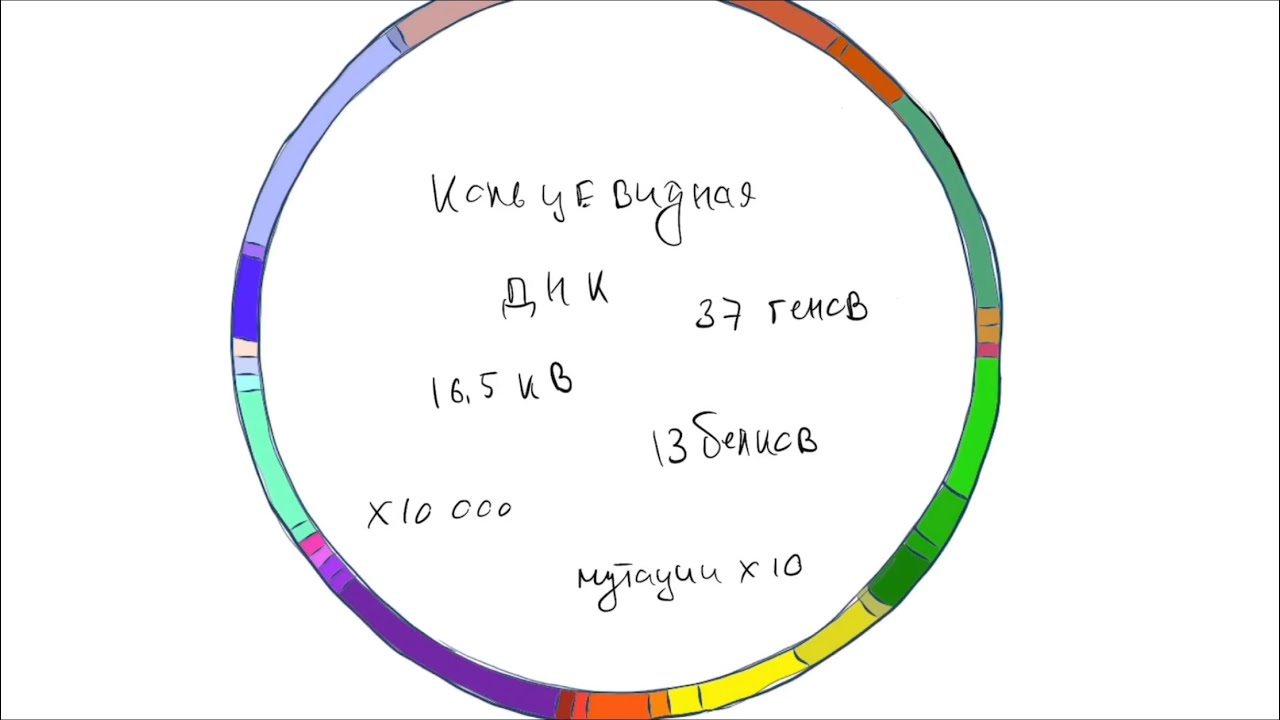 Кольцевидная
ДНК
37 генов
16,5 кв
13 белков
x10 000
мутации x 10